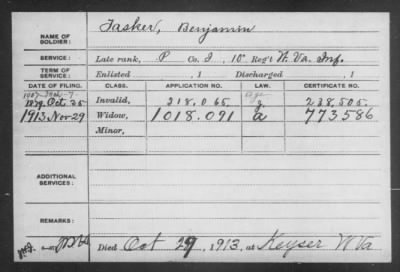 NAME OF SOLDIER: Tasker, Benjamin
SERVICE: Late rank, P Co. I, 10" Reg't W. Va. Inf.
TERM OF SERVICE: Enlisted , 1 Discharged , 1
DATE OF FILING. CLASS. APPLICATION NO. LAW. CERTIFICATE NO.
1907
1879. Oct. 25 Invalid, 318.065. g 238,505.
1913. Nov 29 Widow, 1018.091 a 773586
Minor,
ADDITIONAL SERVICES:
REMARKS:
Died Oct 29, 1913, at Keyser W Va